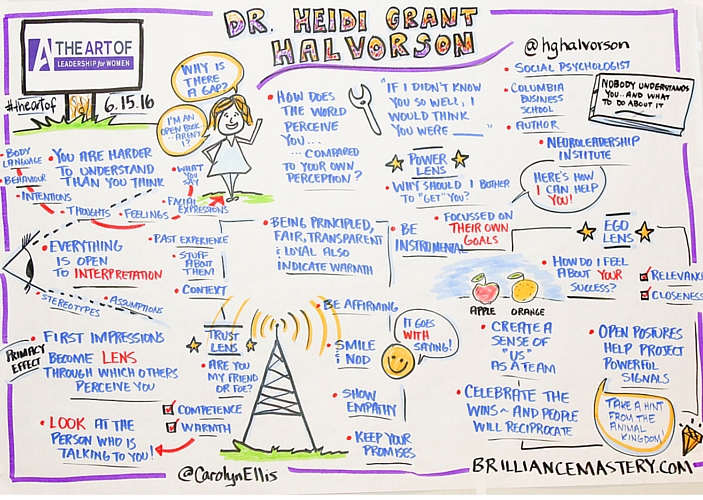 DR. HEIDI GRANT
HALVORSON
A THE ART OF
LEADERSHIP for WOMEN
#theartof
6.15.16
WHY IS
THERE
A GAP?
I'M AN
OPEN BOOK...
AREN'T
I?
• BODY
LANGUAGE
• BEHAVIOUR
• INTENTIONS
• THOUGHTS
• FEELINGS
• FACIAL
EXPRESSIONS
• WHAT
YOU
SAY
• YOU ARE HARDER
TO UNDERSTAND
THAN YOU THINK
• HOW DOES
THE WORLD
PERCEIVE
YOU...
...COMPARED
TO YOUR OWN
PERCEPTION?
"IF I DIDN'T KNOW
YOU SO WELL, I
WOULD THINK
YOU WERE ____"
@hghalvorson
• SOCIAL PSYCHOLOGIST
• COLUMBIA
BUSINESS
SCHOOL
• AUTHOR
• NEUROLEADERSHIP
INSTITUTE
NOBODY UNDERSTANDS
YOU...AND WHAT
TO DO ABOUT IT
POWER
LENS
• WHY SHOULD I BOTHER
TO "GET" YOU?
HERE'S HOW
I CAN HELP
YOU!
• BE
INSTRUMENTAL
FOCUSSED ON
THEIR OWN
GOALS
EGO
LENS
• HOW DO I FEEL
ABOUT YOUR
SUCCESS?
RELEVANCE
CLOSENESS
APPLE ORANGE
• CREATE A
SENSE OF
"US"
AS A TEAM
• CELEBRATE THE
WINS ~ AND PEOPLE
WILL RECIPROCATE
• OPEN POSTURES
HELP PROJECT
POWERFUL
SIGNALS
TAKE A HINT
FROM THE
ANIMAL
KINGDOM
• EVERYTHING
IS OPEN
TO INTERPRETATION
• PAST EXPERIENCE
• STUFF
ABOUT
THEM!
• CONTEXT
• STEREOTYPES
• ASSUMPTIONS
• BEING PRINCIPLED,
FAIR, TRANSPARENT
& LOYAL ALSO
INDICATE WARMTH
• BE AFFIRMING
• SMILE
& NOD
IT GOES
WITH
SAYING!
• SHOW
EMPATHY
• KEEP YOUR
PROMISES
TRUST
LENS
• ARE YOU
MY FRIEND
OR FOE?
COMPETENCE
WARMTH
PRIMACY
EFFECT
• FIRST IMPRESSIONS
BECOME LENS
THROUGH WHICH OTHERS
PERCEIVE YOU
• LOOK AT THE
PERSON WHO IS
TALKING TO YOU!
@CAROLYNELLIS
BRILLIANCEMASTERY.COM